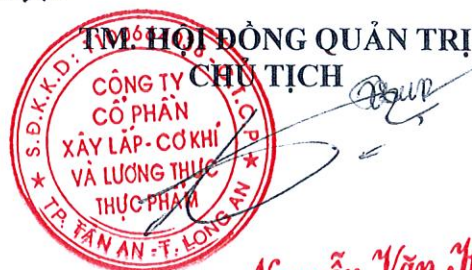 TM. HỘI ĐỒNG QUẢN TRỊ
CHỦ TỊCH
S.Đ.K.K.D:
C.T.C.P
CÔNG TY
CỔ PHẦN
XÂY LẮP - CƠ KHÍ
VÀ LƯƠNG THỰC
THỰC PHẨM
TP. TÂN AN - T. LONG AN
Nguyễn Văn